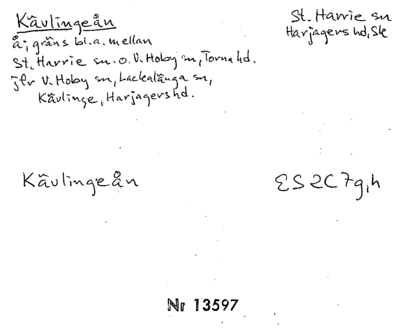 Kävlingeån
St. Harrie sn
Harjagers hd, Sk
å; gräns bl.a. mellan
St. Harrie sn. o. V. Hoby sn, Torna hd.
jfr V. Hoby sn, Lackalänga sn,
Kävlinge, Harjagers hd.
Kävlingeån
ES 2C 7g,h
Nr 13597